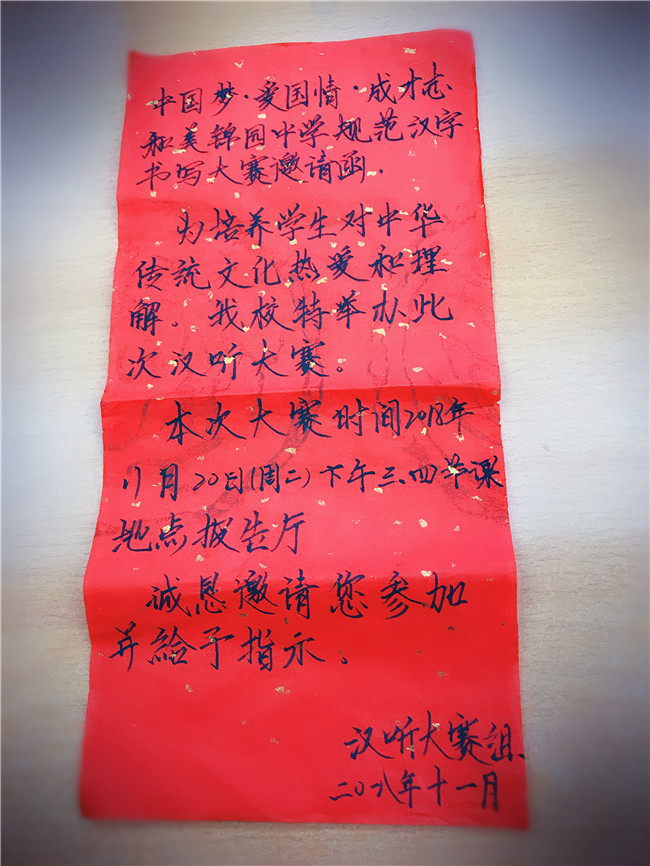 中国梦·爱国情·成才志
和美锦园中学规范汉字
书写大赛邀请函.
为培养学生对中华
传统文化热爱和理
解。我校特举办此
次汉听大赛。
本次大赛时间2018年
11月20日(周二)下午三.四节课
地点报告厅
诚恳邀请您参加
并給予指示。
汉听大赛组.
二〇一八年十一月